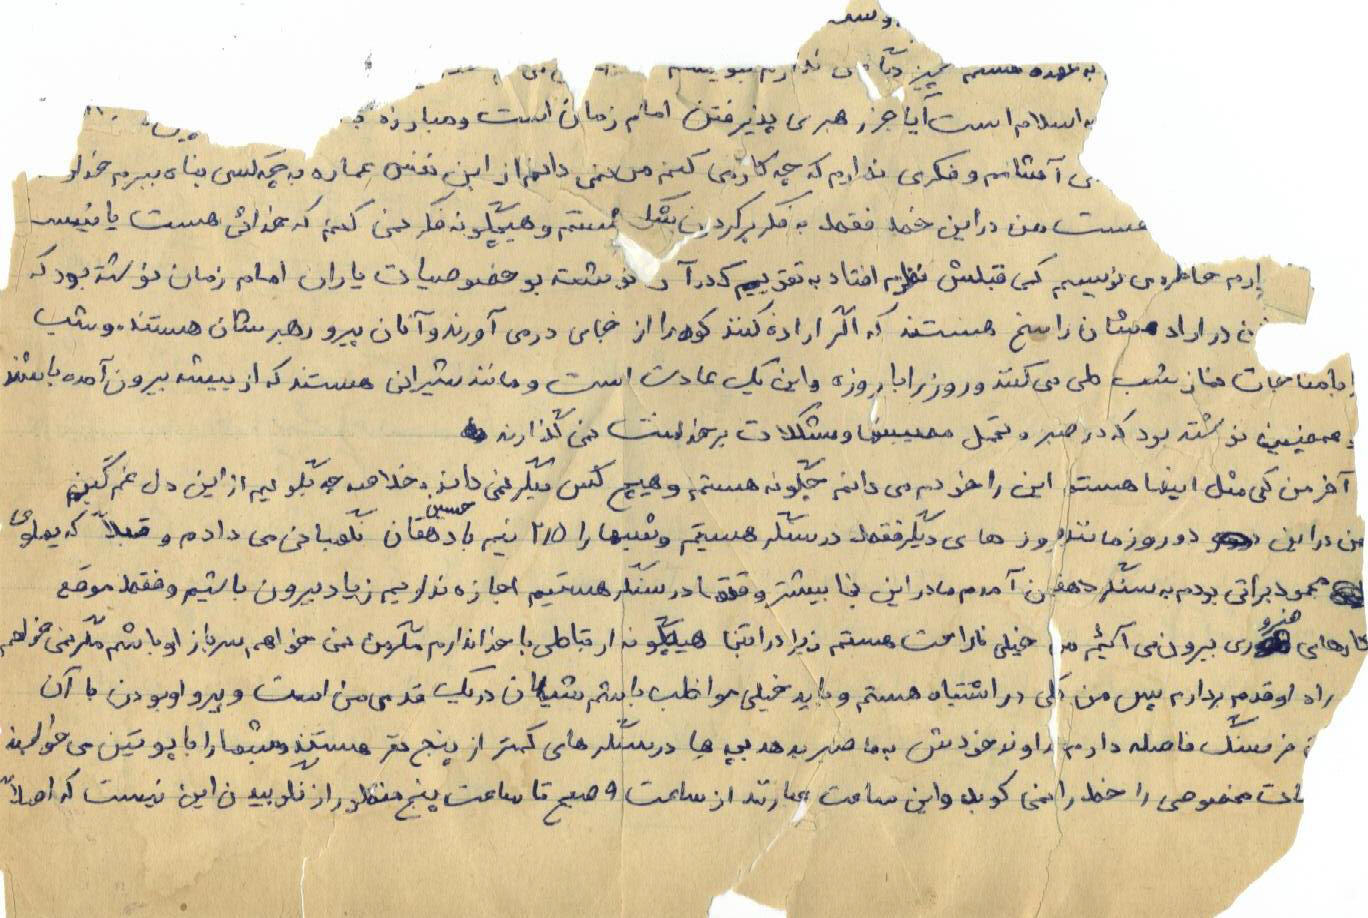 به عهده هستم چیز
به اسلام است آیا جز رهبری پذیرفتن امام زمان است و مبارزه
ی آمتشانم و فکری ندارم که چه کار می کنم من نمی دانم از این نفس عماره به چه کسی پناه ببرم خدا
هست من در این خط فقط به فکر پر کردن شکم هستم و هیچگونه فکر نمی کنم که خدائی هست یا نیست
دارم خاطره می نویسم کمی قبلش نظرم افتاد به تقویم که در آن نوشته بو خصوصیات یاران امام زمان نوشته بود که
در اراده شان راسخ هستند که اگر اراده کنند کوه را از جای در می آورند و آنان پیرو رهبرشان هستند و شب
را با مناجات نماز شب طی می کنند و روز را با روزه و این یک عادت است و مانند شیرانی هستند که از بیشه بیرون آمده باشند
همچنین نوشته بود که در صبر و تحمل مصیبتها و مشکلات بر خدا منت نمی گذارند
آخر من کی مثل اینها هستم این را خودم می دانم چگونه هستم و هیچ کس دیگر نمی داند خلاصه چه بگویم از این دل غمگین
من در این دو روز مانند روز های دیگر فقط در سنگر هستیم و شبها را ۲/۵ نیم با حسین دهقان نگهبانی می دادم و قبلاً که پهلوی
محمود براتی بودم به سنگر دهقان آمدم ما در این جا بیشتر وقتها در سنگر هستیم اجازه نداریم زیاد بیرون باشیم و فقط موقع
کارهای ضروری بیرون می آئیم من خیلی ناراحت هستم زیرا در اینجا هیچگونه ارتباطی با خدا ندارم مگر من نمی خواهم سرباز او باشم مگر نمی خواهم
راه او قدم بردارم پس من کلی در اشتباه هستم و باید خیلی مواظب باشم شیطان در یک قدمی من است و پیرو او بودن با آن
فرسنگ فاصله دارم خداوند خودش به ما صبر بدهد بچه ها در سنگر های کمتر از پنج متر هستند و شبها را با پوتین می خوابند
ساعت مخصوصی را خط را نمی کوبد و این ساعت عبارتند از ساعت ۹ صبح تا ساعت پنج منظور از نکوبیدن این نیست که اصلاً